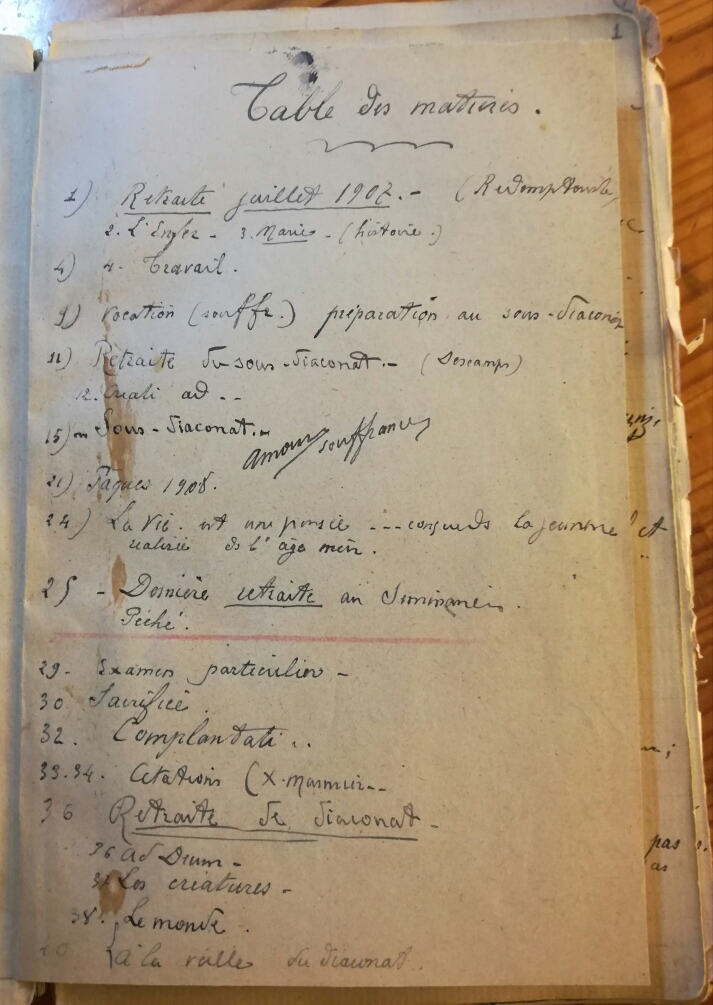 Table des matières.
1) Retraite juillet 1907. - (Rédemptoriste)
2. L'Enfer - 3. Marie - (histoire.)
4) 4. Travail.
9) Vocation (souffr.) préparation au sous-diaconat
11) Retraite du sous-diaconat. - (Descamps)
12. Creati ad --
15) Sous-diaconat. -
amour souffrances
21) Pâques 1908.
24) La Vie est une pensée --- de la jeunesse et
réalisée ds l'âge mûr.
25 - Dernière retraite au Séminaire.
Péché.
29. Examen particulier -
30 Sacrifice.
32. Complantati ..
33.34. Citations (X. Marmier --
36 Retraite de diaconat -
36 ad Deum -
37 Les créatures -
38. Le monde.
40 à la veille du diaconat.
pas
as